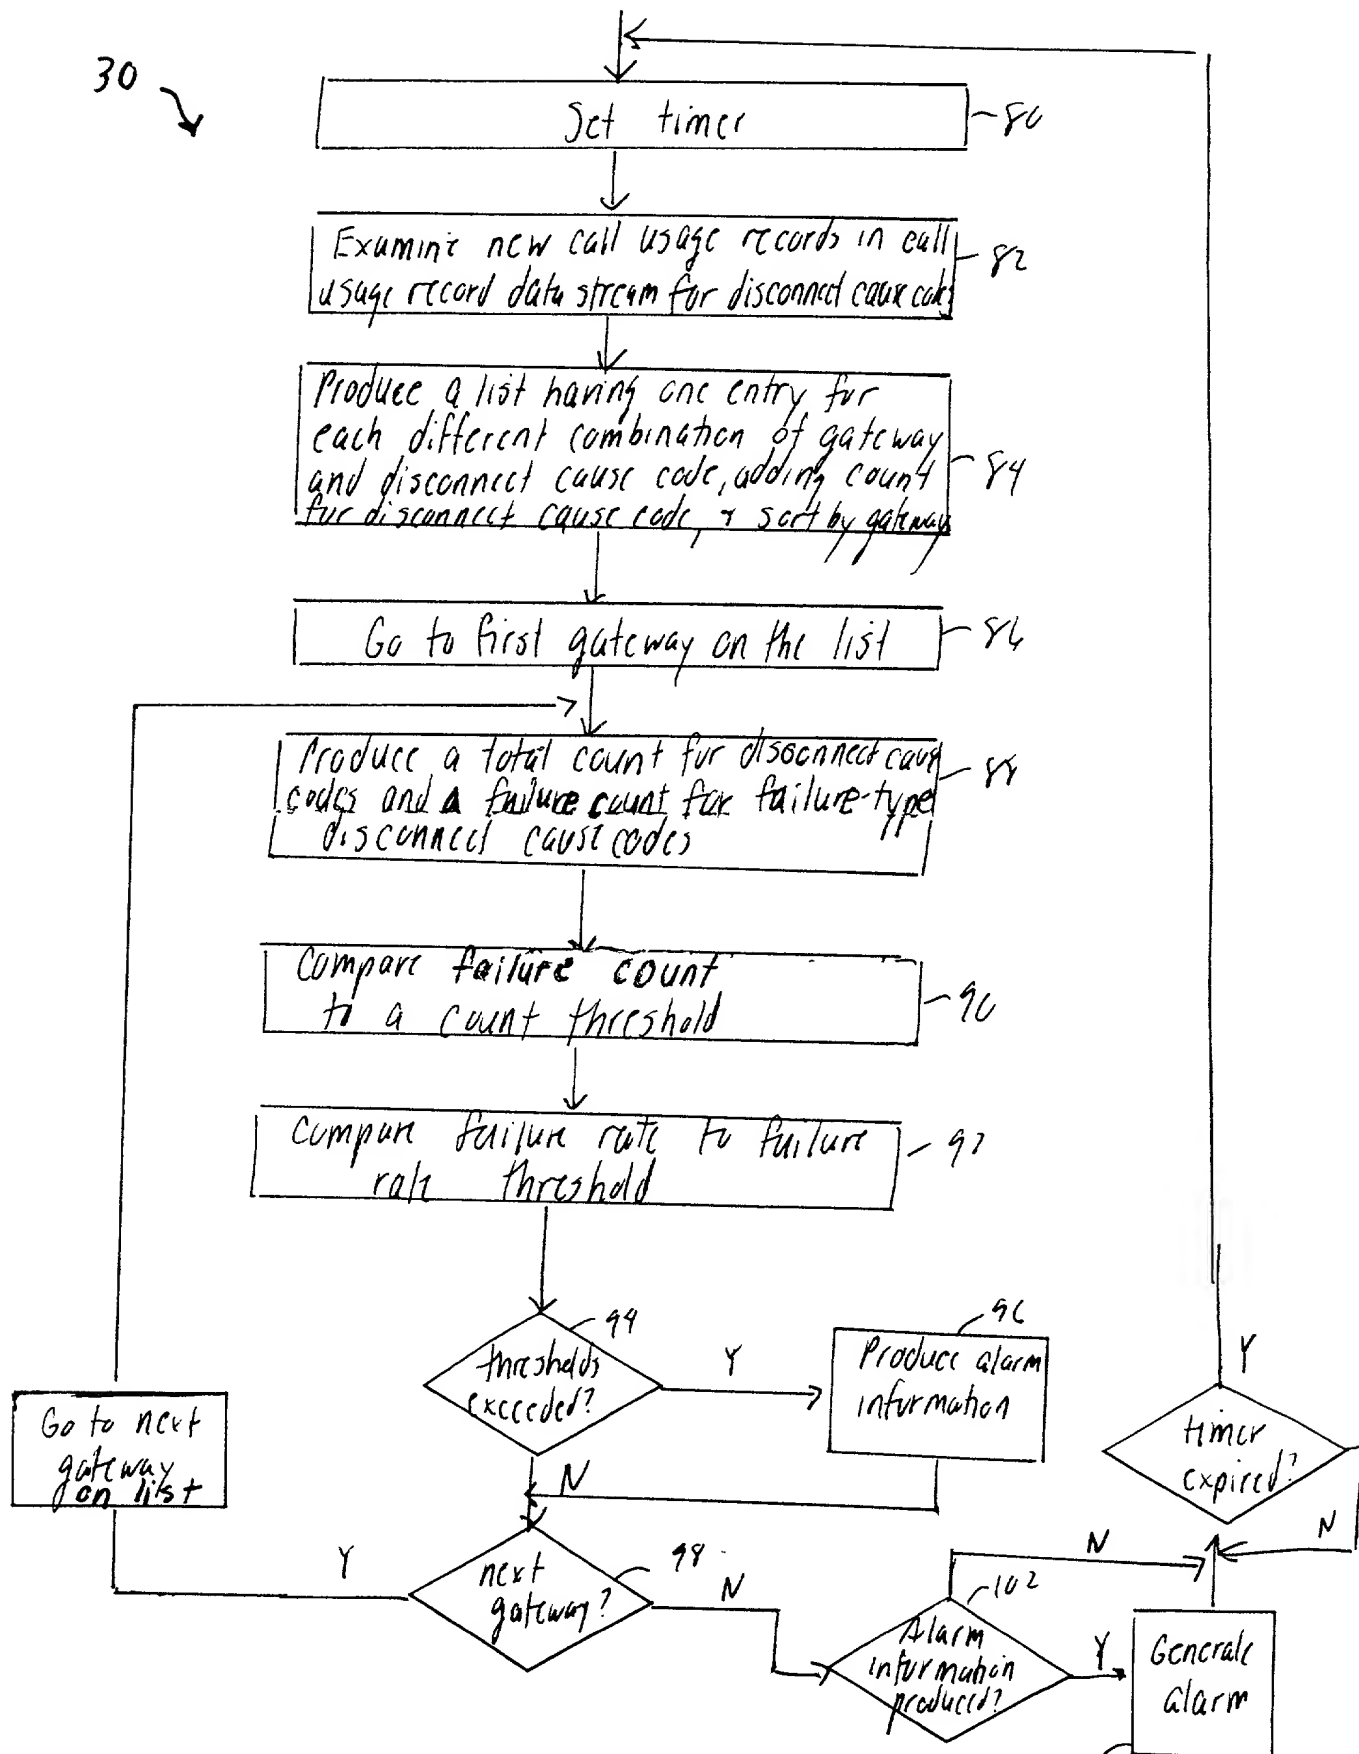 30
Set timer
80
Examine new call usage records in call
usage record data stream for disconnect cause codes
82
Produce a list having one entry for
each different combination of gateway
and disconnect cause code, adding count
for disconnect cause code, & sort by gateway
84
Go to first gateway on the list
86
Produce a total count for disconnect cause
codes and a failure count for failure-type
disconnect cause codes
88
Compare failure count
to a count threshold
90
Compare failure rate to failure
rate threshold
92
94
thresholds
exceeded?
Y
N
96
Produce alarm
information
Y
timer
expired?
N
Go to next
gateway
on list
Y
next
gateway?
98
N
N
102
Alarm
information
produced?
Y
Generate
alarm